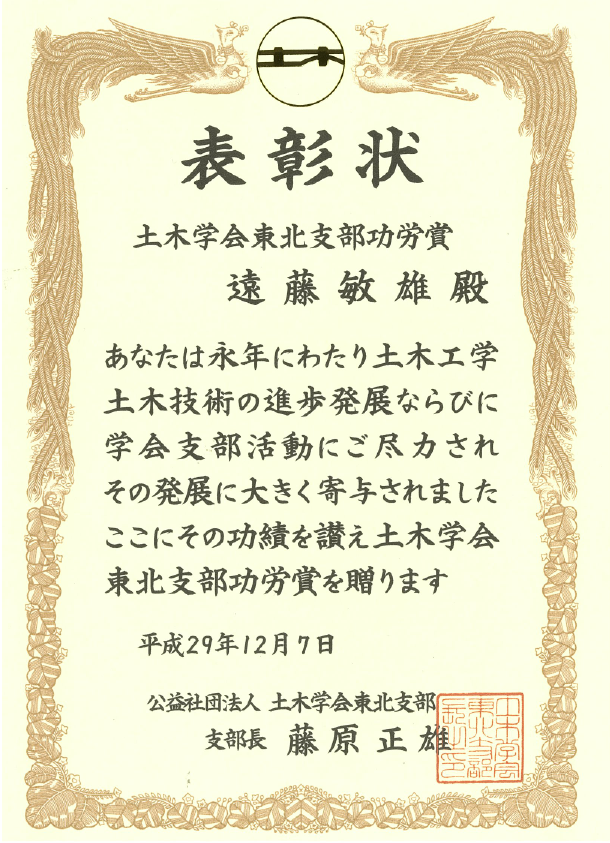 表彰状
土木学会東北支部功労賞
遠藤敏雄殿
あなたは永年にわたり土木工学
土木技術の進歩発展ならびに
学会支部活動にご尽力され
その発展に大きく寄与されました
ここにその功績を讃え土木学会
東北支部功労賞を贈ります
平成29年12月7日
公益社団法人 土木学会東北支部
支部長 藤原正雄